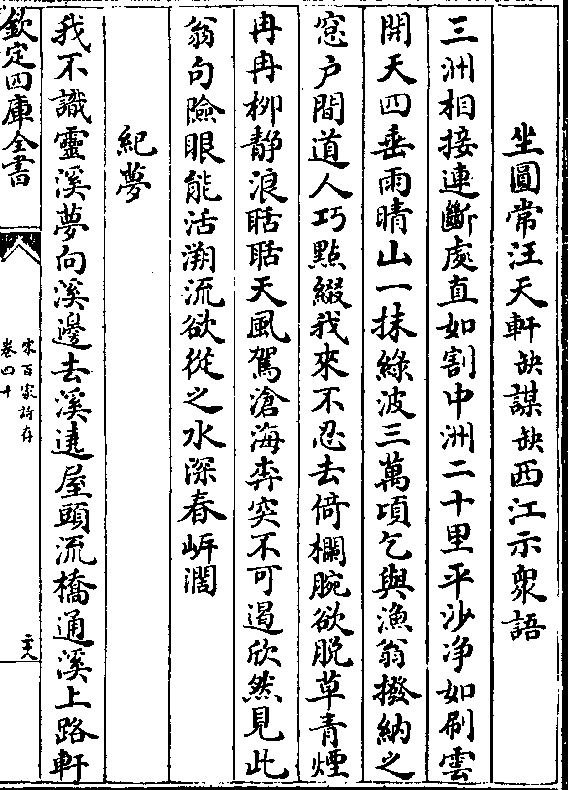 坐圓常汪天軒缺謀缺西江示衆語
三洲相接連斷處直如割中洲二十里平沙净如刷雲
開天四垂雨晴山一抹綠波三萬頃乞與漁翁撥納之
窓户間道人巧點綴我來不忍去倚欄腕欲脱草青煙
冉冉柳静浪聒聒天風駕滄海奔突不可遏欣然見此
翁句險眼能活溯流欲從之水深春㟁濶
紀夢
我不識靈溪夢向溪邊去溪遶屋頭流橋通溪上路軒
欽定四庫全書
宋百家詩存
卷四十
二十八